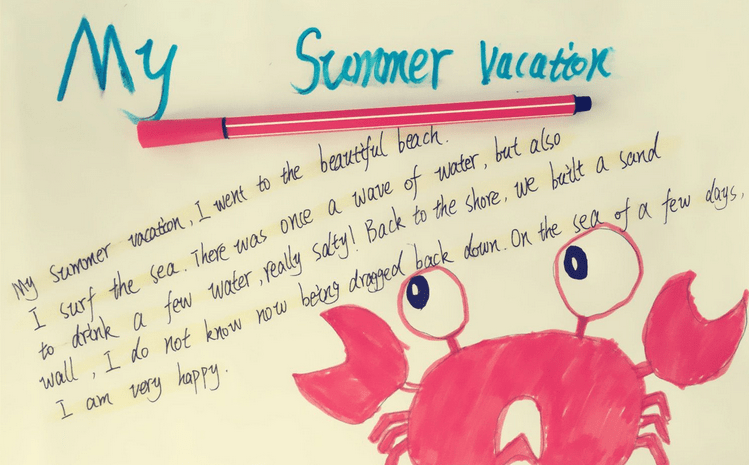 My Summer Vacation
My Summer vacation, I went to the beautiful beach.
I surf the sea. There was once a wave of water, but also
to drink a few water, really salty! Back to the shore, we built a sand
wall, I do not know now being dragged back down. On the sea of a few days,
I am very happy.